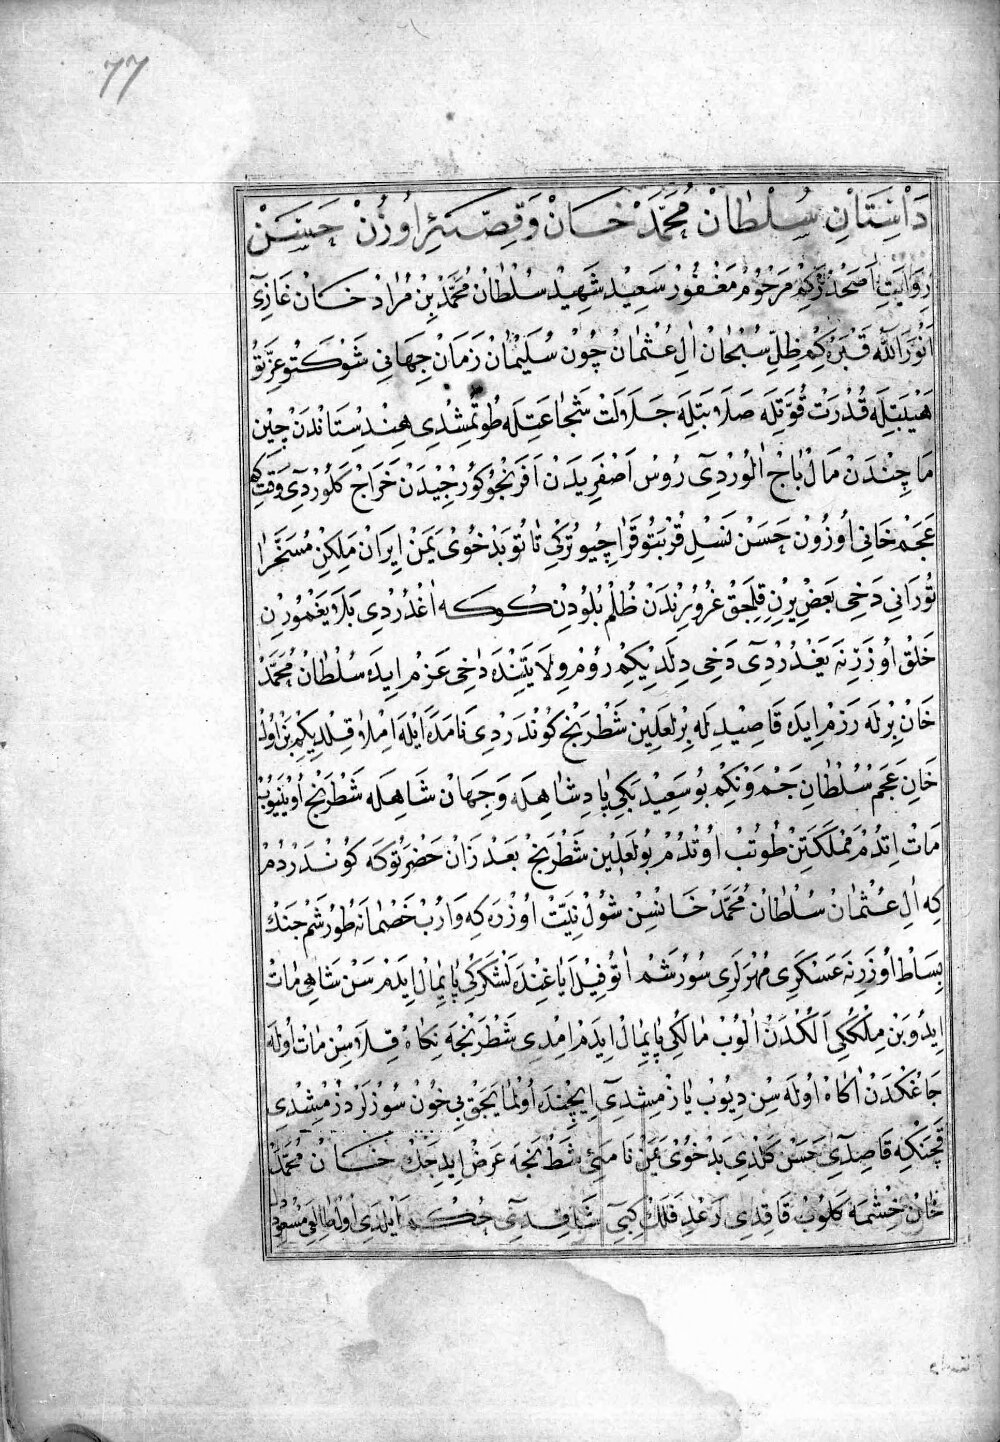 77
دَاْسِتَانِ سُلْطَانْ مُحَمَّدْ خَانْ وَقِصَّهٔ اُوزُنْ حَسَنْ
رِوَايَتِ اَصَحْدُرْكِمْ مَرْحُوُمْ مَغْفُورْ سَعِيدْ شَهِيدْ سُلْطَانْ مُحَمَّدْ بِنْ مُرَادْ خَانْ غَازِىٓ
اَنْوَرَ اللّٰهُ قَبْرَهُ كِمْ ظِلِّ سُبْحَانْ اٰلِ عُثْمَانْ چُونْ سُلَيْمَانْ زَمَانْ جِهَانِى شَوْكَتُو عِزَّتُو
هَيْبَتِلَه قُدْرَتْ قُوَّتِلَه صَلَابَتِلَه جَلَالَتْ شَجَاعَتِلَه طُوتْمِشْدِى هِنْدِسْتَانْدَنْ چِينِ
مَا چِنْدَنْ مَالْ بَاجْ اٰلُوُرْدِىٓ رُوُسْ اَصْفَرِيدَنْ اَفَرَنْجُو كُورْجِيْدَنْ خَرَاجْ كَلُوُرْدِىٓ وَقْتِكِهْ
عَجَمْ خَانِى اُوزُوُنْ حَسَنْ نَسْلِ قُزْبَتُو قَرَاچِيُو تُرْكِى تَاتُو بَدْخُوىْ يَمَنْ اِيرَانْ مُلِكِنْ مُسَخَّرَا
تُوُرَانِى دَخِى بَعْضِ يِرْنِ قِلِجَقْ غُرُوُرِنْدَنْ ظُلْمْ بُلُوُدِنْ كُوكَه اٰغْدُرْدِى بَلَا يَغْمُوُرِنِ
خَلْقْ اُوزَرِنَه يَغْدُرْدِىٓ دَخِى دِلَدِيكِمْ رُوُمْ وِلَايَتِنْدَه دَاخِى عَزْمْ اِيدَه سُلْطَانْ مُحَمَّدْ
خَانْ بِرْلَه رَزْمْ اِيدَه قَاصِيْدِلَه بِرْ لَعْلِيْنِ شَطْرَنْجْ كُونْدَرْدِى نَامَدَه اَيْلَه اِمْلَا قِلْدِيكِمْ بَنْ اُولُو
خَانِ عَجَمْ سُلْطَانِ جَمْ وَنْكِمْ بُو سَعِيْدْ بَكِى پَادِشَاهِلَه وَجِهَانْ شَاهِلَه شَطْرَنْجْ اُوْيْنِيُوبْ
مَاتْ اِتْدُمْ مَمْلَكَتِنْ طُوتُبْ اُوتْدُمْ بُو لَعْلِيْن شَطْرَنْجْ بَعْدَ زَانْ حَضْرَتُوكَه كُونْدَرْدُمْ
كِه اٰلِ عُثْمَانْ سُلْطَانْ مُحَمَّدْ خَانْسِنْ شُوُلْ نِيَّتْ اُوزْرَه كِه وَارُبْ خَصْمَانَه طُورُشَمْ جَنْكْ
بِسَاطْ اُوزَرِنَه عَسْكَرِى مُهْرَلَرِى سُوُرَشَمْ اٰتُو فِيْلْ اَيَاغِنْدَه لَشْكَرْكِى پَايِمَالْ اِيدَمْ سَنْ شَاهِى مَاتْ
اِيدُوبَنْ مِلْكُكِى اَلْكُدَنْ اٰلُوُبْ مَالْكِى پَايِمَالْ اِيدَمْ اِمْدِى شَطْرَنْجَه نِكَاهْ قِلَاسِنْ مَاتْ اُولَه
جَاغْكَدَنْ اٰكَاهْ اُولَه سِنْ دِيُوبْ يَازْمِشْدِىٓ اِيچِنْدَه اُولْمَايَجَقْ بِى خُوُنْ سُوزْلَرْ دُزْمِشْدِى
قَچَنْكِه قَاصِدِىٓ حَسَنْ كَلْدِى بَدْخُوىْ يَمَنْ نَامَهٔ شَطْرَنْجَه عَرْضْ اِيدِيجَكْ خَانْ مُحَمَّدْ
خَانْ خِشْمَه كَلُوُبْ قَاقِدِى رَعْدِ فَلَكْ كِبِىٓ شَاقِدِىٓ حُكْمْ اَيْلَدِى اُولْ طَالِعِى مَسْعُوُدْ